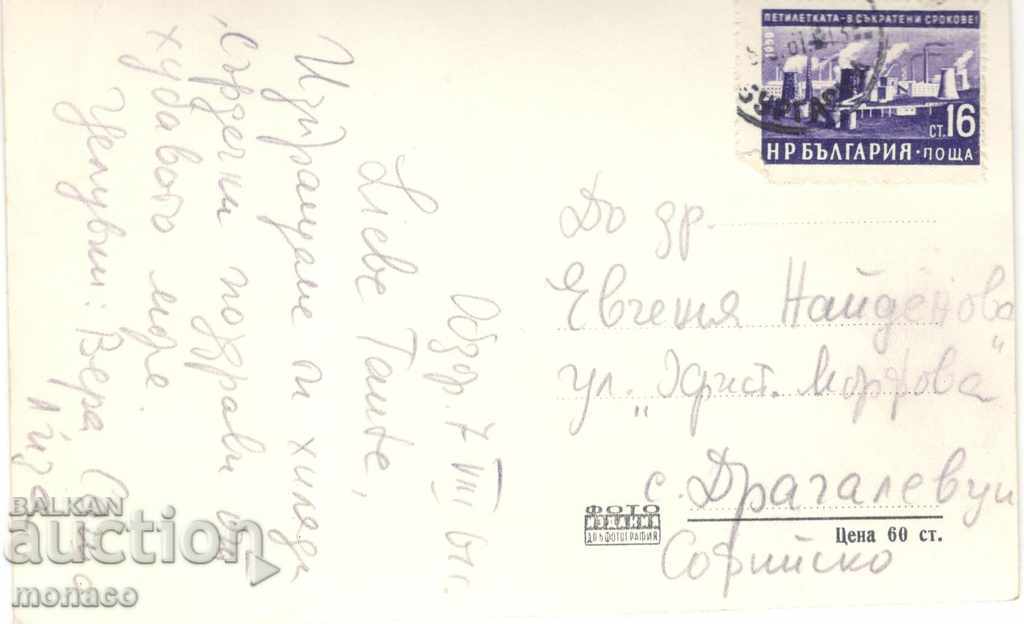 ПЕТИЛЕТКАТА - В СЪКРАТЕНИ СРОКОВЕ!
1959
СТ. 16
НР БЪЛГАРИЯ · ПОЩА
До др.
Евгения Найденова
ул. „Христ. Морфова"
с. Драгалевци
Софийско
ФОТО
ИЗДАНИЕ
ДП ФОТОГРАФИЯ
Цена 60 ст.
Обзор. 7 VIII 61 г.
Liebe Tante,
Изпращаме ти хиляди
сърдечни поздрави от
хубавото море.
Целувки: Вера
BALKAN
auction
monaco